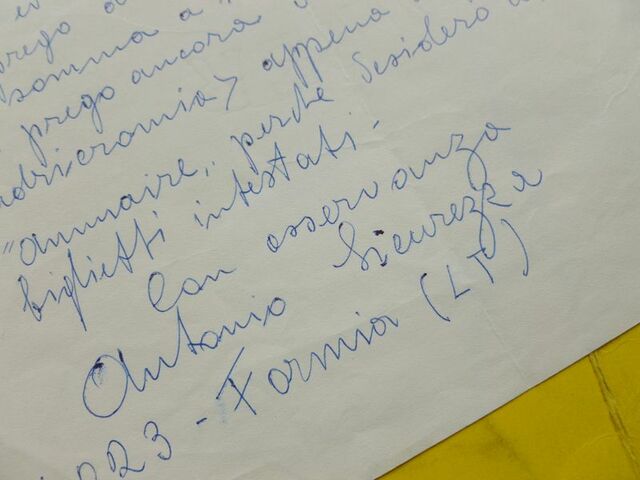 prego
somma a "
prego ancora
adricromia) appena
"annuaire,, perché desidero
biglietti intestati -
Con osservanza
Antonio Sicurezza
023 - Formia (LT)